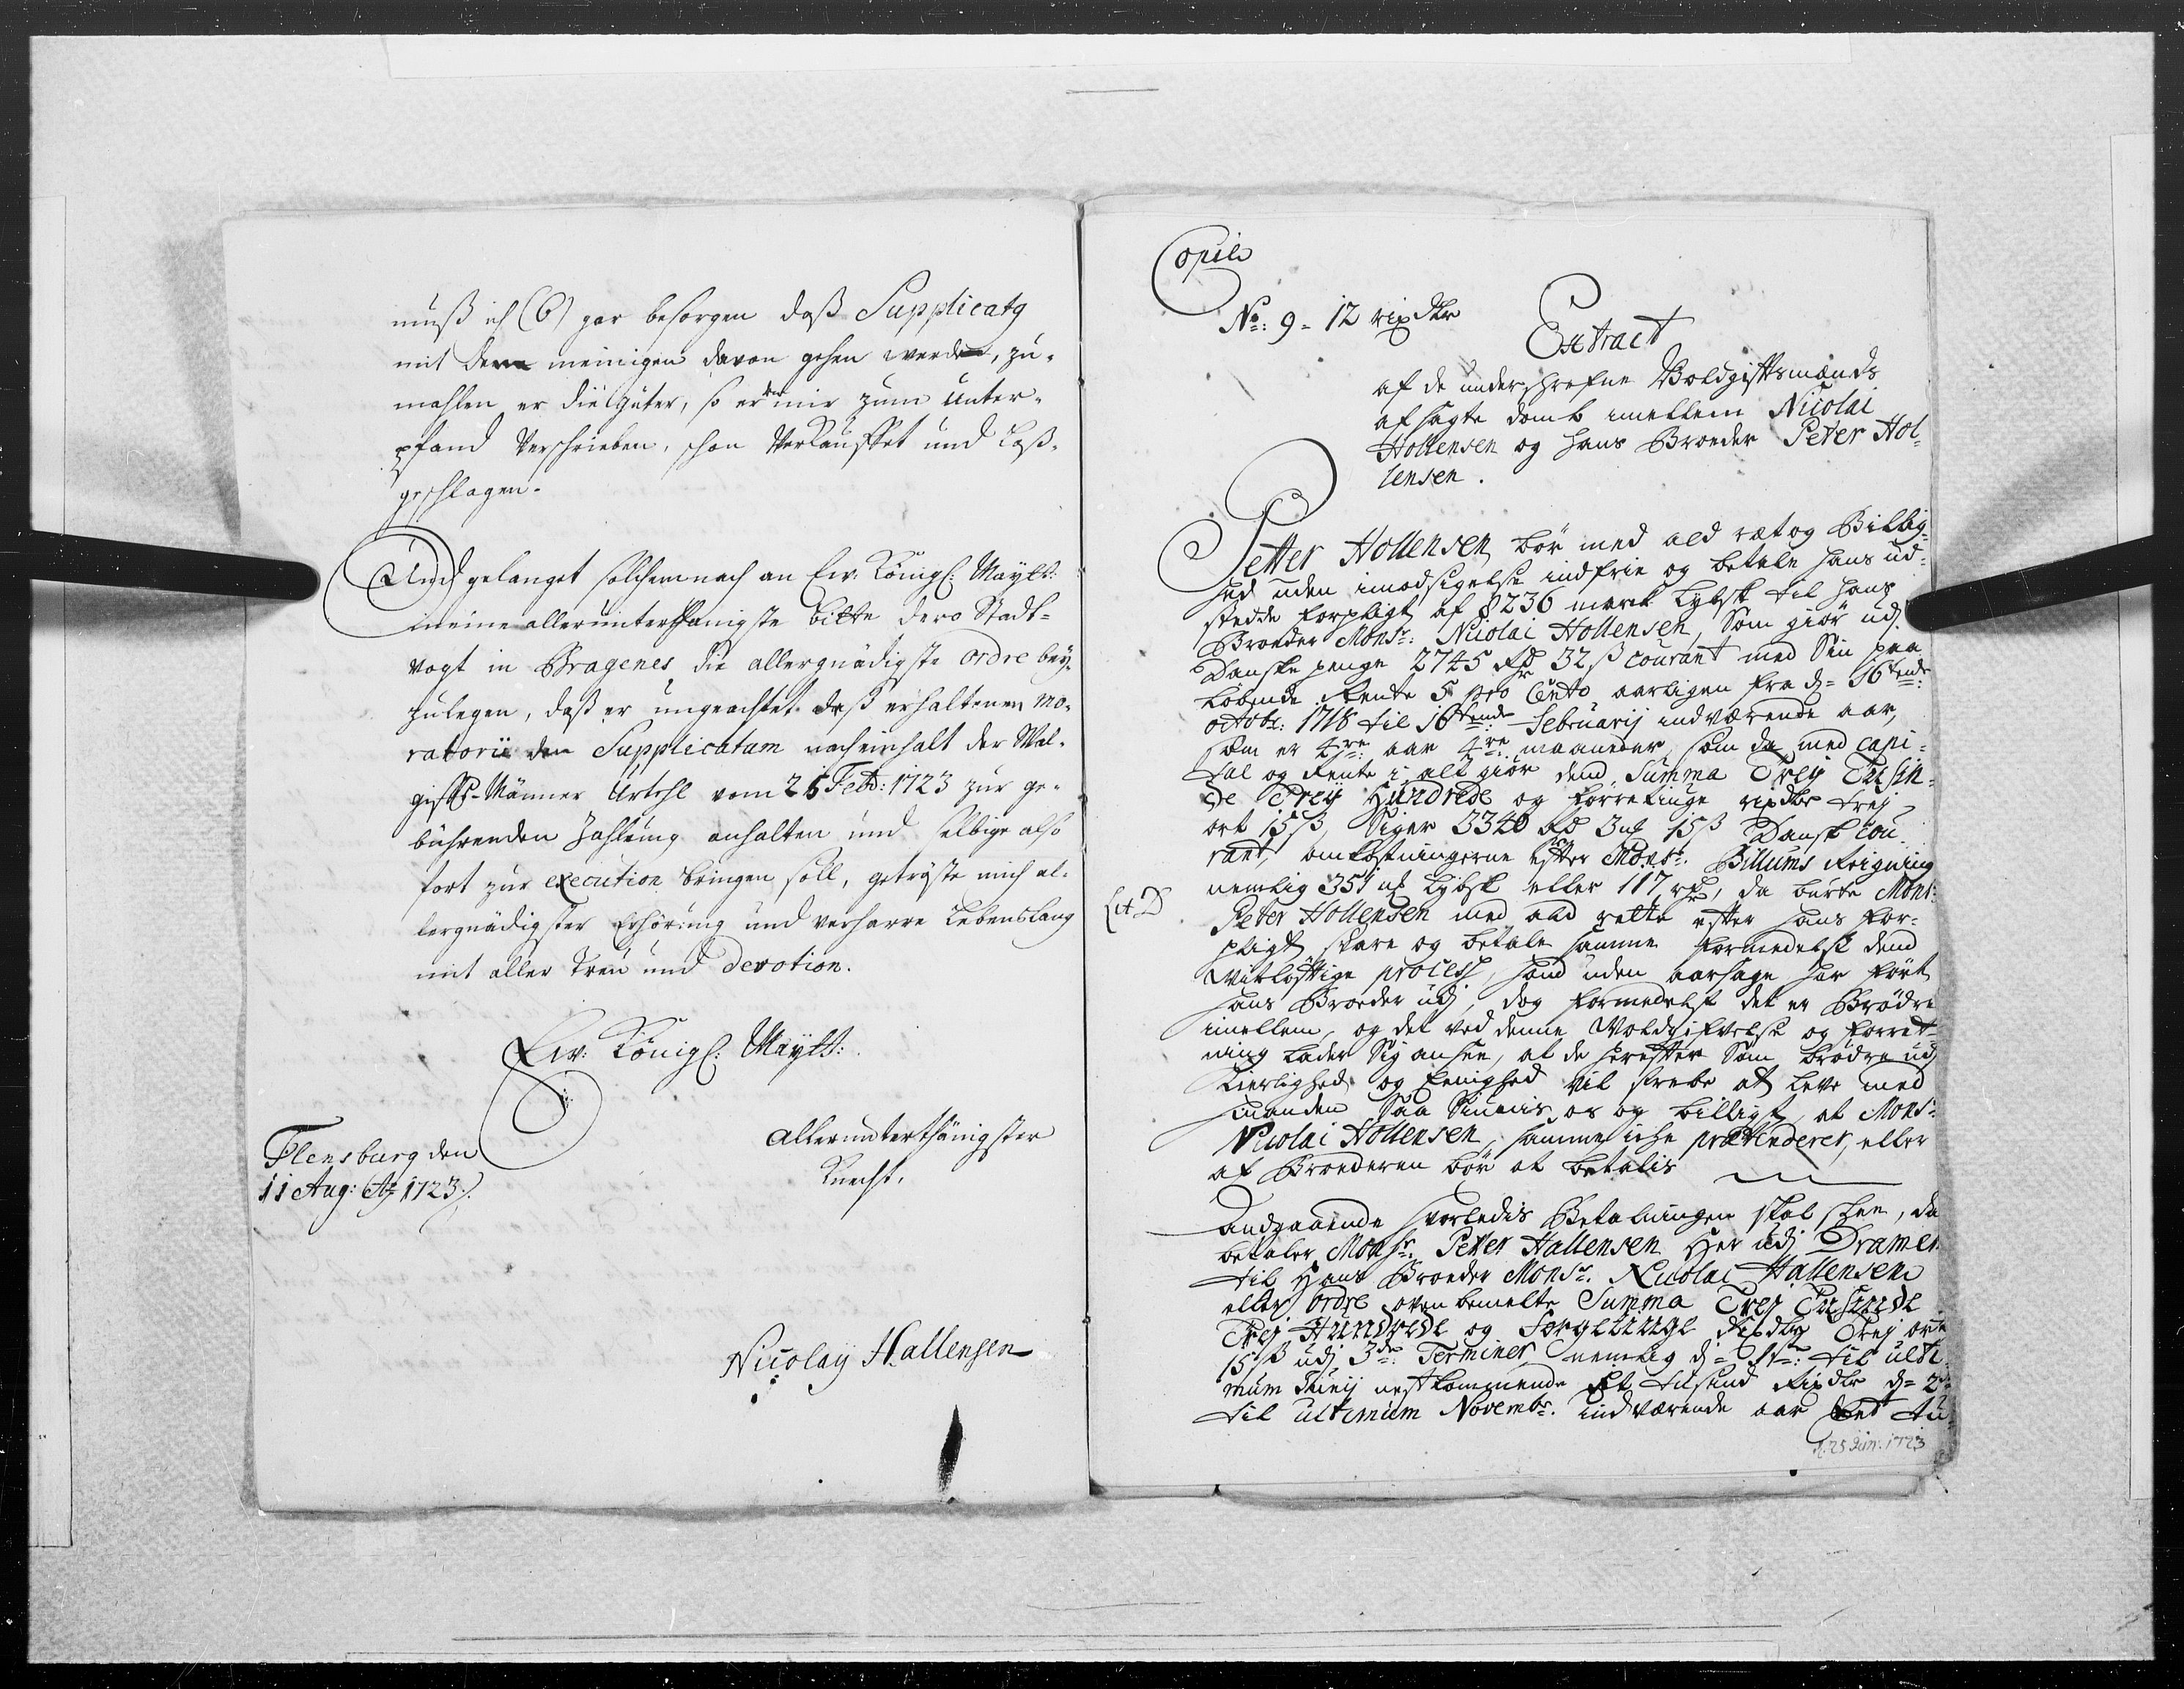 muß ich (6) gar besorgen daß Supplicatg
mit dem meinigen davon gehen werde, zu-
mahlen er die Güter, so er mir zum Unter-
pfand verschrieben, schon verkauffet und loß-
geschlagen.
Und gelanget solchemnach an Ew: Königl: Maytt:
meine allerunterthänigste bitte dero Stadt-
vogt in Bragenes die allergnädigste ordre bey-
zulegen, daß er ungeachtet deß erhaltenen mo-
ratorii den Supplicatum nach einhalt der Wol-
giffts-Männer Urtehl vom 25 Feb: 1723 zur ge-
bührenden Zahlung anhalten und selbige also
fort zur execution bringen soll, getröste mich al-
lergnädigster Erhörung und verharre Lebenslang
mit aller Treu und devotion.
Ew: Königl: Maytt:
allerunterthänigster
Knecht.
Flensburg den
11 Aug: Ao 1723.
Nicolay Hallensen
Copie
No: 9 - 12 rixdlr
Extract
af de underschrefne Voldgiftsmænds
afsagte domb imellem Nicolai
Hollensen og hans Broeder Peter Hol-
lensen.
Petter Hollensen bör med ald ret og Billig-
hed uden imodsigelse indfrie og betale hans ud-
stedde forpligt af 8236 marck Lybsk til hans
Broeder Monsr: Nicolai Hollensen, som giör udj
Danske penge 2745 Rd 32 ß courant med Sin paa
Löbende Rente 5 pro Cento aarligen fra d= 16tende
octobr: 1718 til 16tende Februarij indværende aar,
som er 4re aar 4re maaneder, som da med Capi-
tal og Rente i alt giör dend Summa Treij Tusin-
de Treij Hundrede og förretiuge rixdlr trej
ort 15 ß, Siger 3340 Rd 3 ort 15 ß Dansk Cou-
rant, omkostningerne efter Monsr: Billums Reigning
nemlig 351 mk Lybsk eller 117 rd, da burte Monsr:
Lit D
Peter Hollensen med ald rette efter hans for-
pligt svare og betale samme formedelst dend
Vitlöftige process, hand uden aarsage har fört
hans Broeder udj, dog formedelst det er Brödre
imellem, og det ved denne Voldgifvelse og forret-
ning lader Sig ansee, at de herefter Som brödre udj
Kierlighed og Eenighed vil strebe at leve med
hinanden saa Siunnis os og billigt, at Monsr:
Nicolai Hollensen, samme iche prætenderer, eller
af Broederen bör at betalis
Andgaaende hvorledis Betalningen skal skee, da
betaler Monsr: Peter Hallensen her udj Dramen
til Hans Broeder Monsr: Nicolai Hallensen
eller ordre ovenbemelte Summa Trej Tusinde
Trej Hundrede og Förgetiuge Rixdlr Trej ort
15 ß udj 3de Terminer, nemlig d= 1te: til ulti-
mum Junij nestkommende Et tusind Rixdlr d= 2de
til ultimum Novembr: indværende aar Eet tu-
d. 25 Jun: 1723